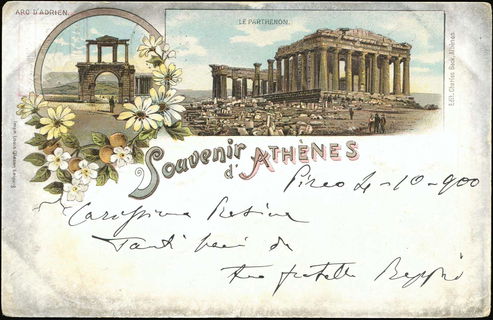 ARC D'ADRIEN.
LE PARTHENON.
Edit. Charles Beck, Athènes.
Souvenir
d'ATHÈNES
Pireo 4-10-900
Carissima
Tanti baci da
tuo fratello Beppi